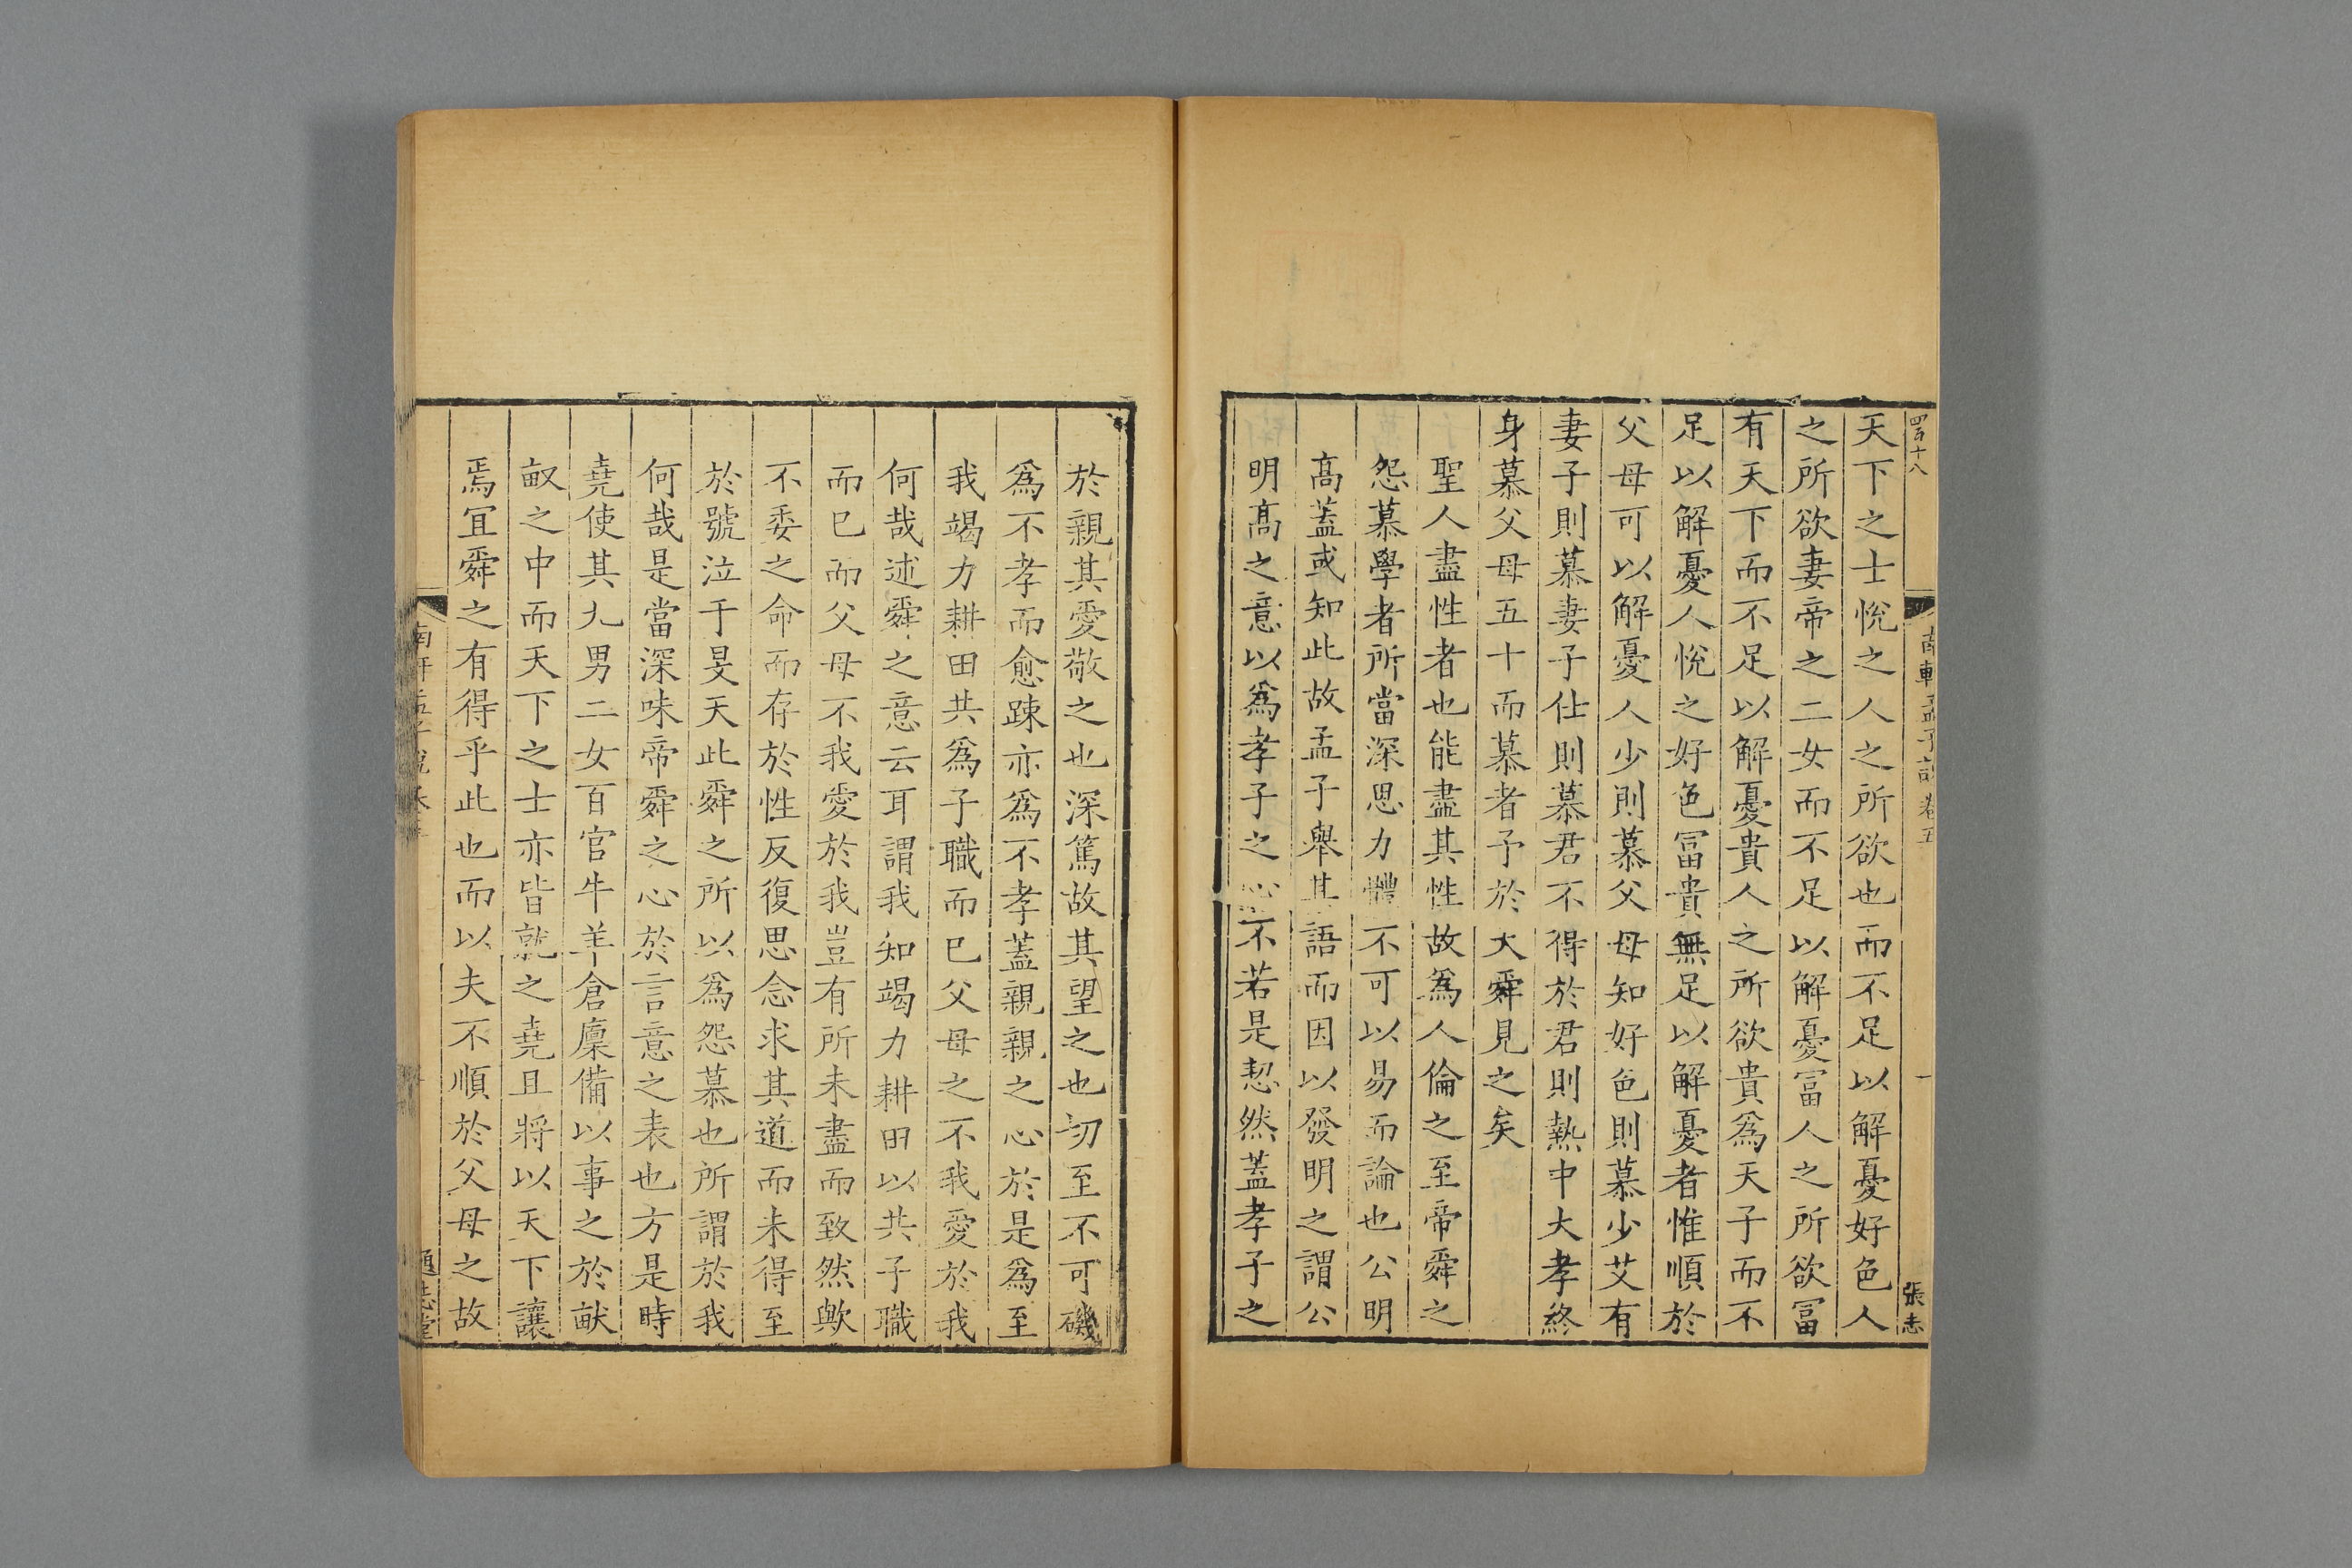 四百十八
南軒孟子說卷五
一
張志
天下之士悅之人之所欲也而不足以解憂好色人
之所欲妻帝之二女而不足以解憂富人之所欲冨
有天下而不足以解憂貴人之所欲貴爲天子而不
足以解憂人悅之好色冨貴無足以解憂者惟順於
父母可以解憂人少則慕父母知好色則慕少艾有
妻子則慕妻子仕則慕君不得於君則熱中大孝終
身慕父母五十而慕者予於大舜見之矣
聖人盡性者也能盡其性故爲人倫之至帝舜之
怨慕學者所當深思力體不可以易而論也公明
髙蓋或知此故孟子舉其語而因以發明之謂公
明髙之意以爲孝子之心不若是恝然蓋孝子之
於親其愛敬之也深篤故其望之也切至不可磯
爲不孝而愈踈亦爲不孝蓋親親之心於是爲至
我竭力耕田共爲子職而已父母之不我愛於我
何哉述舜之意云耳謂我知竭力耕田以共子職
而已而父母不我愛於我豈有所未盡而致然歟
不委之命而存於性反復思念求其道而未得至
於號泣于旻天此舜之所以爲怨慕也所謂於我
何哉是當深味帝舜之心於言意之表也方是時
堯使其九男二女百官牛羊倉廩備以事之於畎
畝之中而天下之士亦皆就之堯且將以天下讓
焉冝舜之有得乎此也而以夫不順於父母之故
南軒孟子說
通志堂